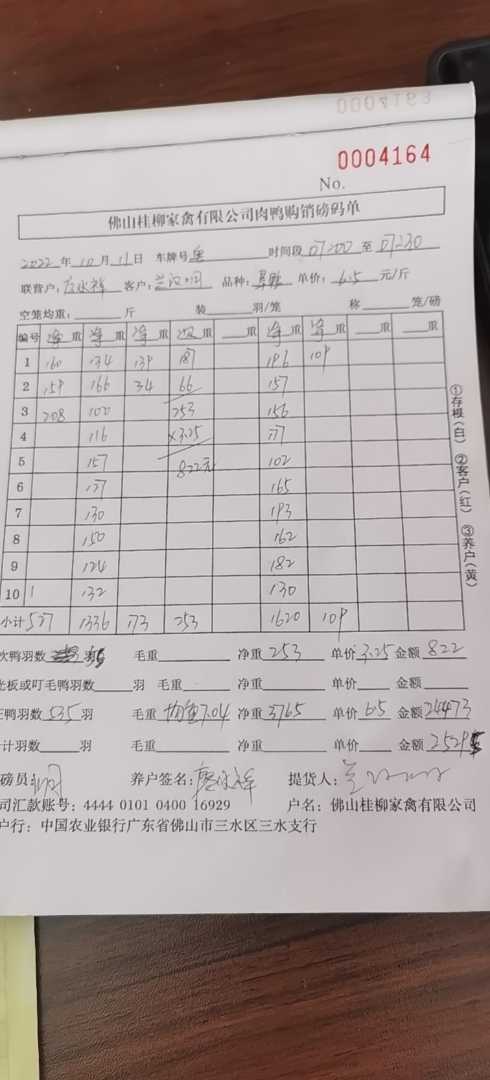 0004163
0004164
No.
佛山桂柳家禽有限公司肉鸭购销磅码单
2022年10月11日 车牌号 时间段07200至07230
联营户: 客户: 品种: 单价:6.5元/斤
空笼均重:斤 装羽/笼 称笼/磅
编号 净重 净重 净重 次重 重 净重 净重 重 重
1 160 134 139 187 196 109
2 159 166 34 66 157
3 208 100 253 156
4 116 ×3.25 177
5 157 822元 102
6 127 165
7 130 193
8 150 162
9 124 182
10 132 130
小计 527 1336 173 253 1620 109
次鸭羽数羽 毛重 净重253 单价3.25 金额822
光板或叮毛鸭羽数羽 毛重 净重 单价 金额
正鸭羽数535羽 毛重均重7.04 净重3765 单价6.5 金额24473
计羽数羽 毛重 净重 单价 金额25295
磅员: 养户签名: 提货人:
司汇款账号: 4444 0101 0400 16929 户名: 佛山桂柳家禽有限公司
户行: 中国农业银行广东省佛山市三水区三水支行
①存根(白) ②客户(红) ③养户(黄)